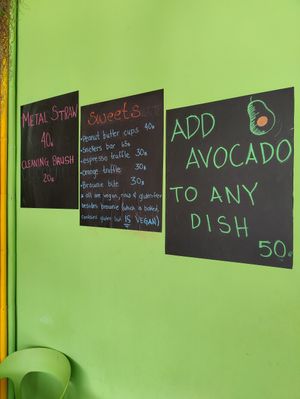 METAL STRAW
40฿
CLEANING BRUSH
20฿
Sweets
• Peanut butter cups 40฿
• Snickers bar 65฿
• espresso truffle 30฿
• Orange truffle 30฿
• Brownie bite 30฿
* all are vegan, raw & gluten-free
besides brownie (which is baked,
contains gluten but IS VEGAN)
ADD
AVOCADO
TO ANY
DISH
50฿